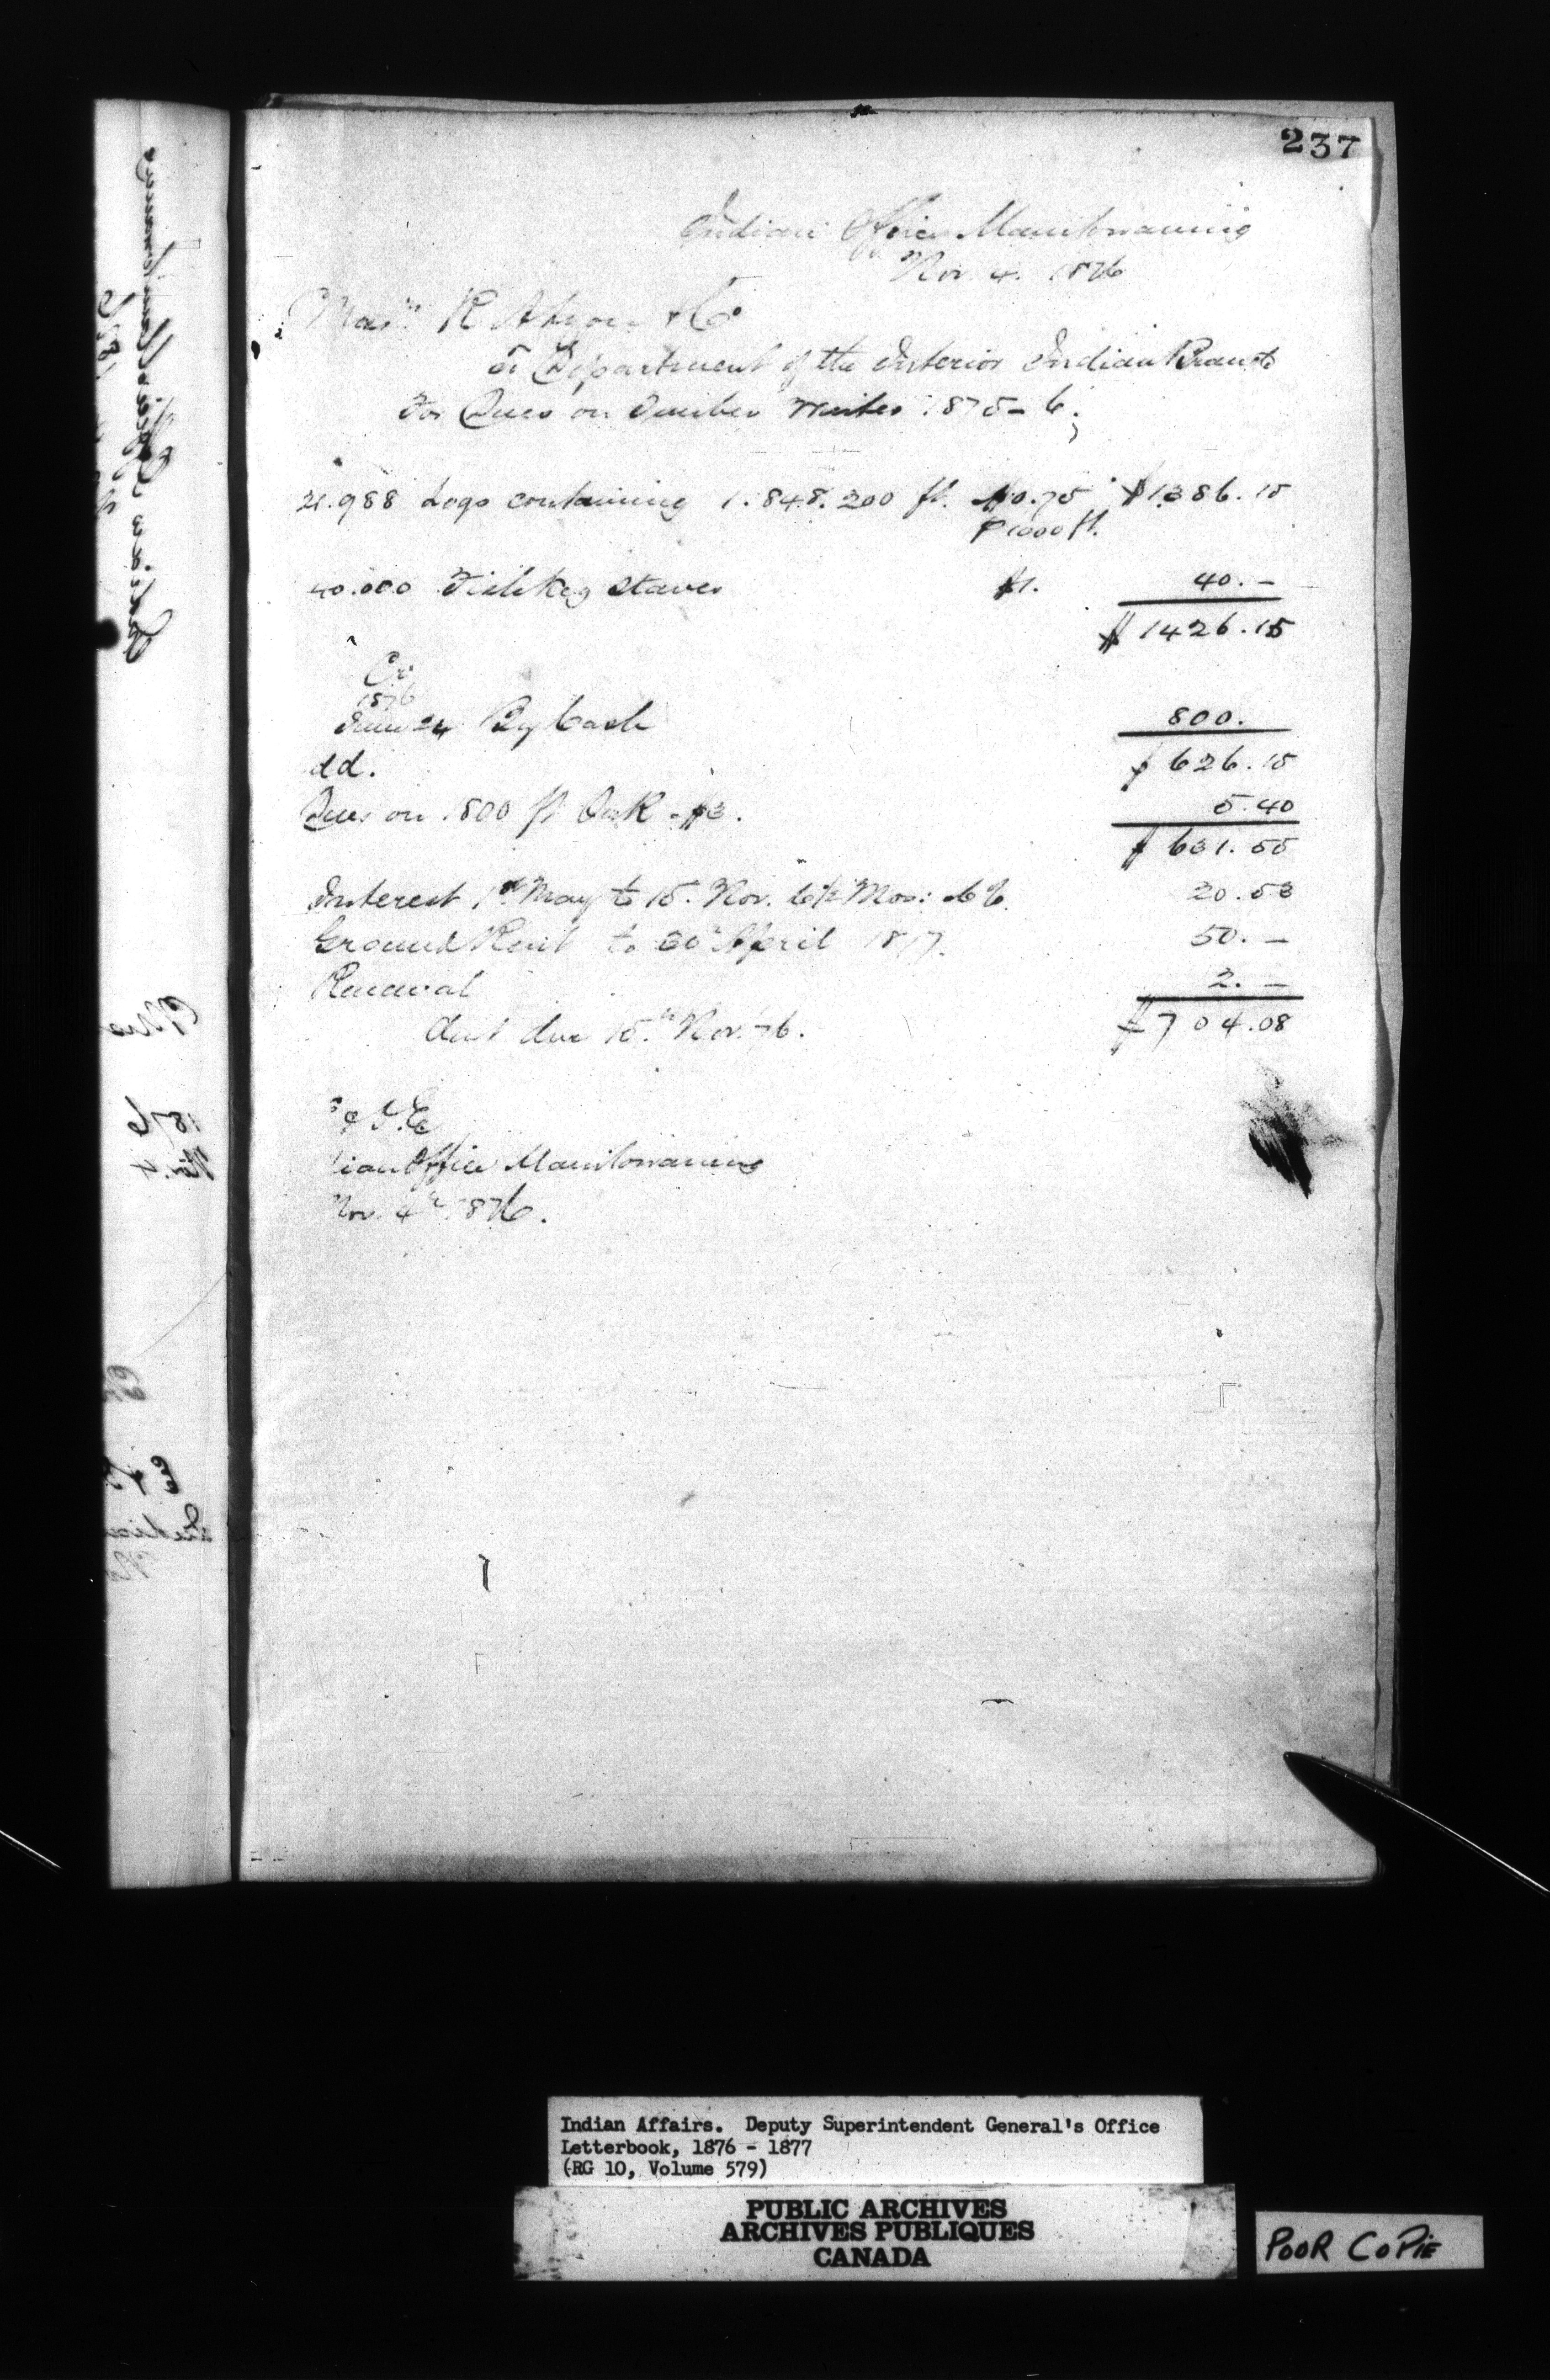 237
Indian Office Manitowaning
Nov. 4. 1876
Mess.rs R. & Co
To Department of the Interior Indian Branch
For Dues on Timber winter 1875-6;
21.988 Logs containing 1.848.200 ft. $0.75 $1386.15
P 1000 ft.
40.000 Fish Keg Staves $1. 40.-
$1426.15
Cr.
1876
June 24 By Cash 800.
dd. $626.15
Dues on 1800 ft Oak $3. 5.40
$631.55
Interest 1st May to 15. Nov. 6½ Mos: 6% 20.53
Ground Rent to 30th April 1877. 50.-
Renewal 2.-
Amt due 15.th Nov. 76. $704.08
& .E
ian Office Manitowaning
Nov. 4th 1876.
Indian Affairs. Deputy Superintendent General's Office
Letterbook, 1876 - 1877
(RG 10, Volume 579)
PUBLIC ARCHIVES
ARCHIVES PUBLIQUES
CANADA
POOR COPIE